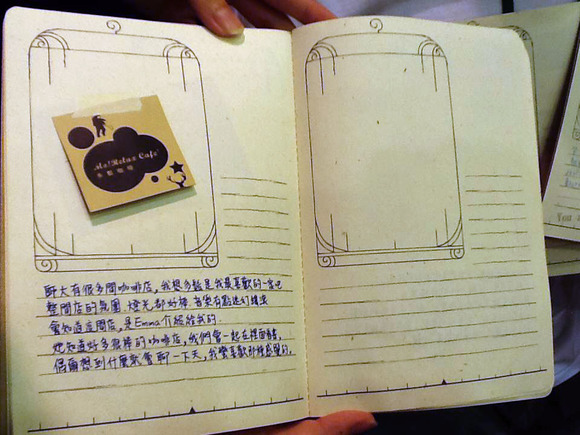 Mo!Relax Cafe'
多鬆咖啡
師大有很多間咖啡店,我想多鬆是我最喜歡的一家吧
整間店的氛圍、燈光都好棒,音樂有點迷幻搖滾
會知道這間店,是Emma介紹給我的.
她知道好多很棒的咖啡店,我們會一起在裡面看書,
偶爾想到什麼就會聊一下天,我蠻喜歡那種感覺的.